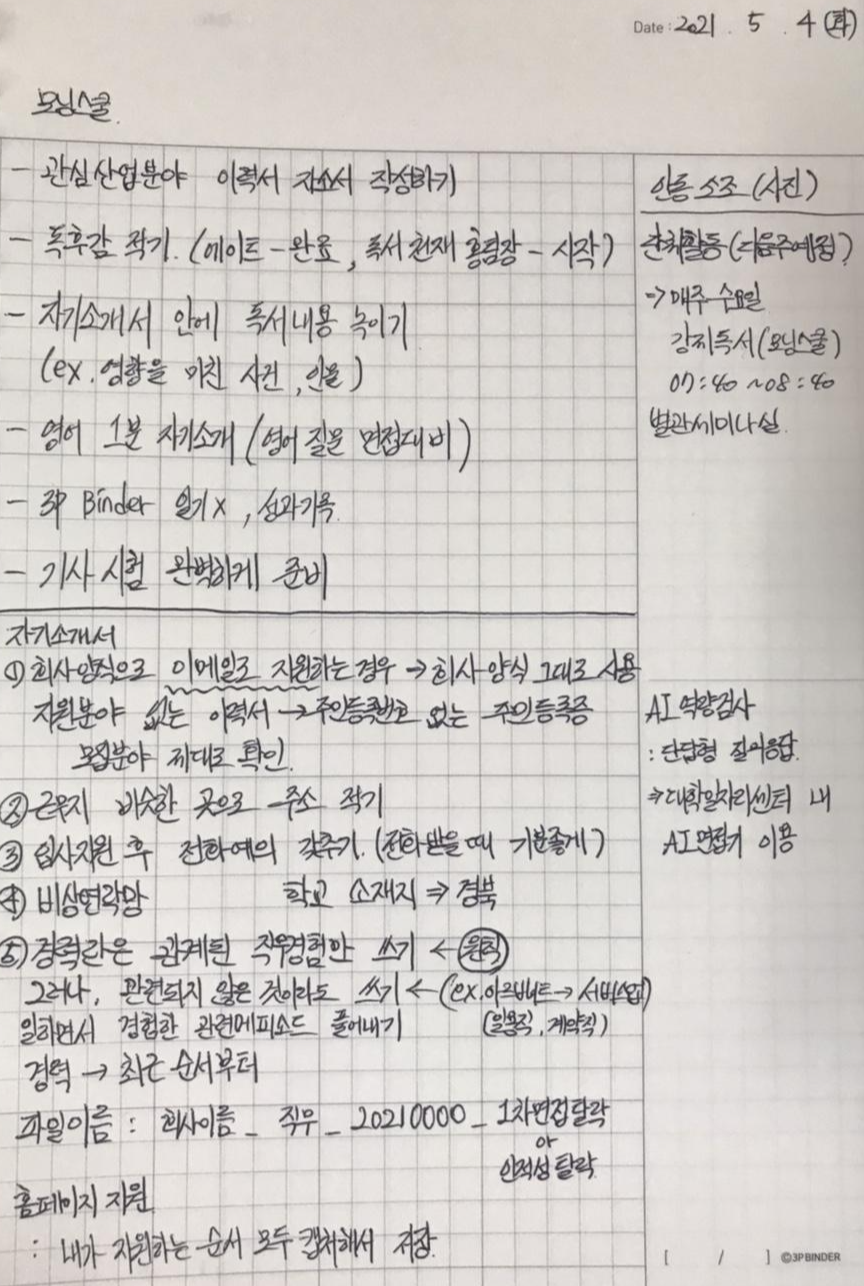 Date : 2021 . 5 . 4 (화)
모닝스쿨
- 관심산업분야 이력서 자소서 작성하기
- 독후감 적기. (에이트-완료, 독서천재 홍팀장 - 시작)
- 자기소개서 안에 독서내용 녹이기
(ex. 영향을 미친 사건, 인물)
- 영어 1분 자기소개 (영어 질문 면접대비)
- 3P Binder 일기x, 성과기록
- 기사시험 완벽하게 준비
인증소조 (사진)
단체활동 (다음주예정?)
→ 매주 수요일
강제독서 (모닝스쿨)
07:40 ~ 08:40
별관세미나실.
자기소개서
① 회사양식으로 이메일로 지원하는 경우 → 회사양식 그대로 사용
지원분야 없는 이력서 → 주민등록번호 없는 주민등록증
모집분야 제대로 확인.
② 근무지 비슷한 곳으로 주소 적기
③ 입사지원 후 전화예의 갖추기. (전화받을때 기분좋게)
④ 비상연락망 학교 소재지 ⇒ 경북
⑤ 경력란은 관계된 직무경험만 쓰기 ← 원칙
그러나, 관련되지 않은 것이라도 쓰기 ← (ex. 아르바이트 → 서비스업)
일하면서 경험한 관련에피소드 풀어내기 (일용직, 계약직)
경력 → 최근 순서부터
파일이름 : 회사이름 _ 직무 _ 20210000 _ 1차면접탈락
or
인적성 탈락
홈페이지 지원
: 내가 지원하는 순서 모두 캡처해서 저장.
AI 역량검사
: 단답형 질의응답.
⇒ 대학일자리센터 내
AI면접기 이용
[ / ] ©3PBINDER